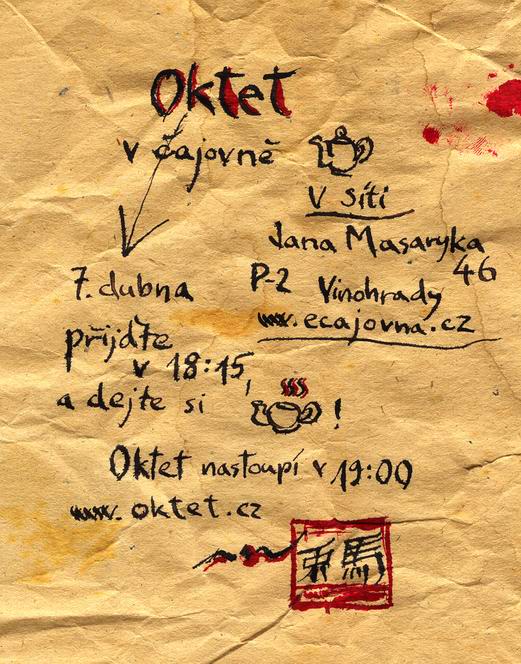 Oktet
v čajovně
V síti
Jana Masaryka
46
P-2 Vinohrady
www.ecajovna.cz
7. dubna
přijďte
v 18:15,
a dejte si !
Oktet nastoupí v 19:00
www.oktet.cz
馬